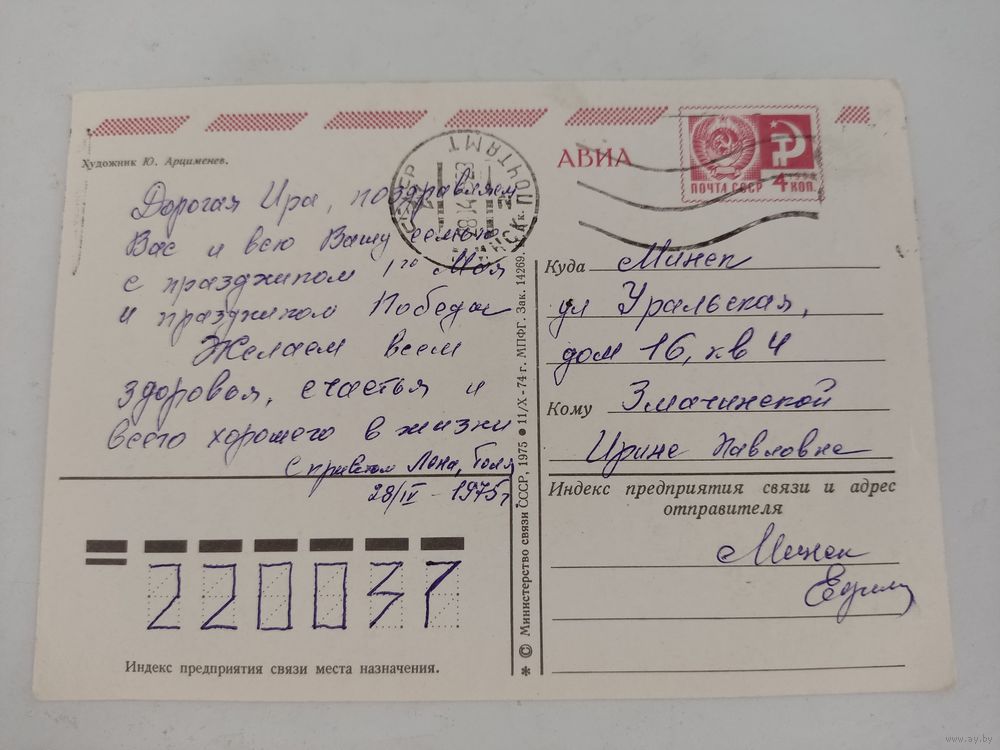 Художник Ю. Арцименев.
АВИА
ПОЧТА СССР 4 КОП.
МИНСК ПОЧТАМТ
Дорогая Ира, поздравляем
Вас и всю Вашу семью
с праздником 1го Мая
и праздником Победы
Желаем всем
здоровья, счастья и
всего хорошего в жизни
С приветом Лена, Толя
28/IV - 1975г
220037
Индекс предприятия связи места назначения.
* © Министерство связи СССР, 1975 ● 11/X-74 г. МПФГ. Зак. 14269. к.
Куда Минск
ул Уральская,
дом 16, кв 4
Кому Змачинской
Ирине Павловне
Индекс предприятия связи и адрес
отправителя
Минск
www.ay.by